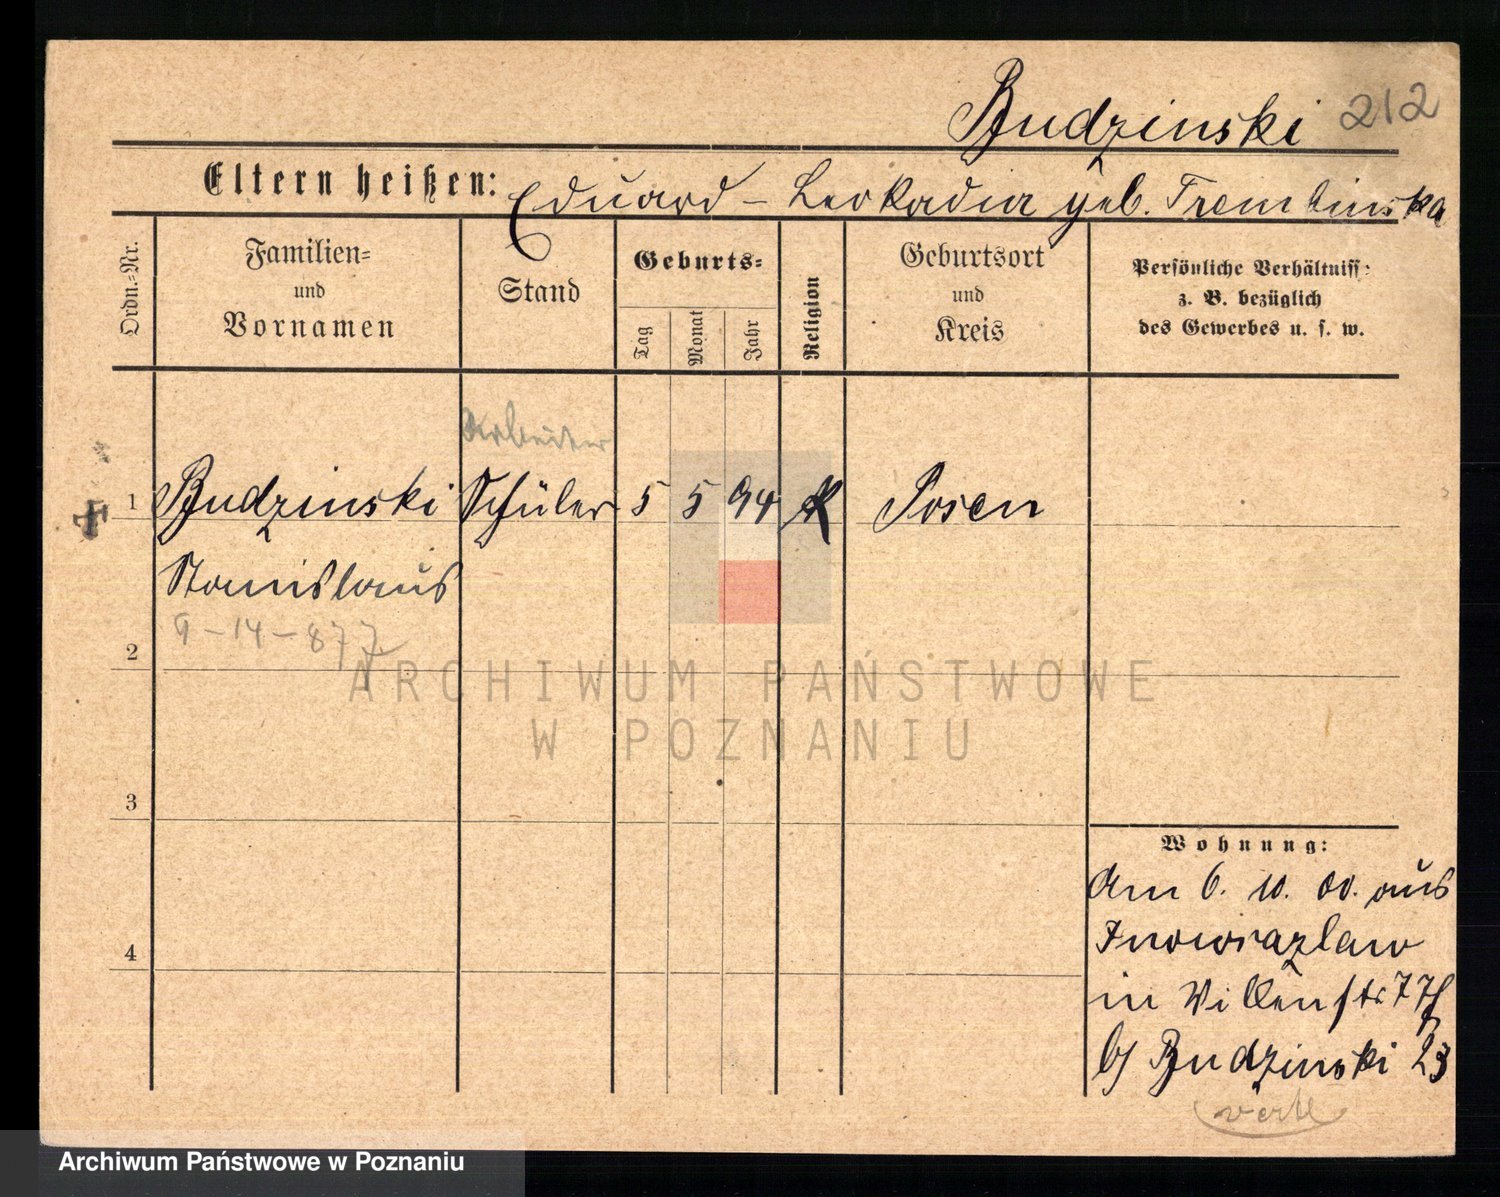 Budzinski 212
Eltern heißen: Eduard – Leokadia geb. Trembinska
Ordn.=Nr.
Familien=
und
Vornamen
Stand
Geburts=
Tag
Monat
Jahr
Religion
Geburtsort
und
Kreis
Persönliche Verhältniss:
z. B. bezüglich
des Gewerbes u. s. w.
Arbeiter
1 Budzinski Schüler 5 5 94 K Posen
Stanislaus
9 – 14 – 877
2
ARCHIWUM PAŃSTWOWE
W POZNANIU
3
4
Wohnung:
Am 6. 10. 00. aus
Inowrazlaw
in Villenstr 7
b/ Budzinski 23
Archiwum Państwowe w Poznaniu